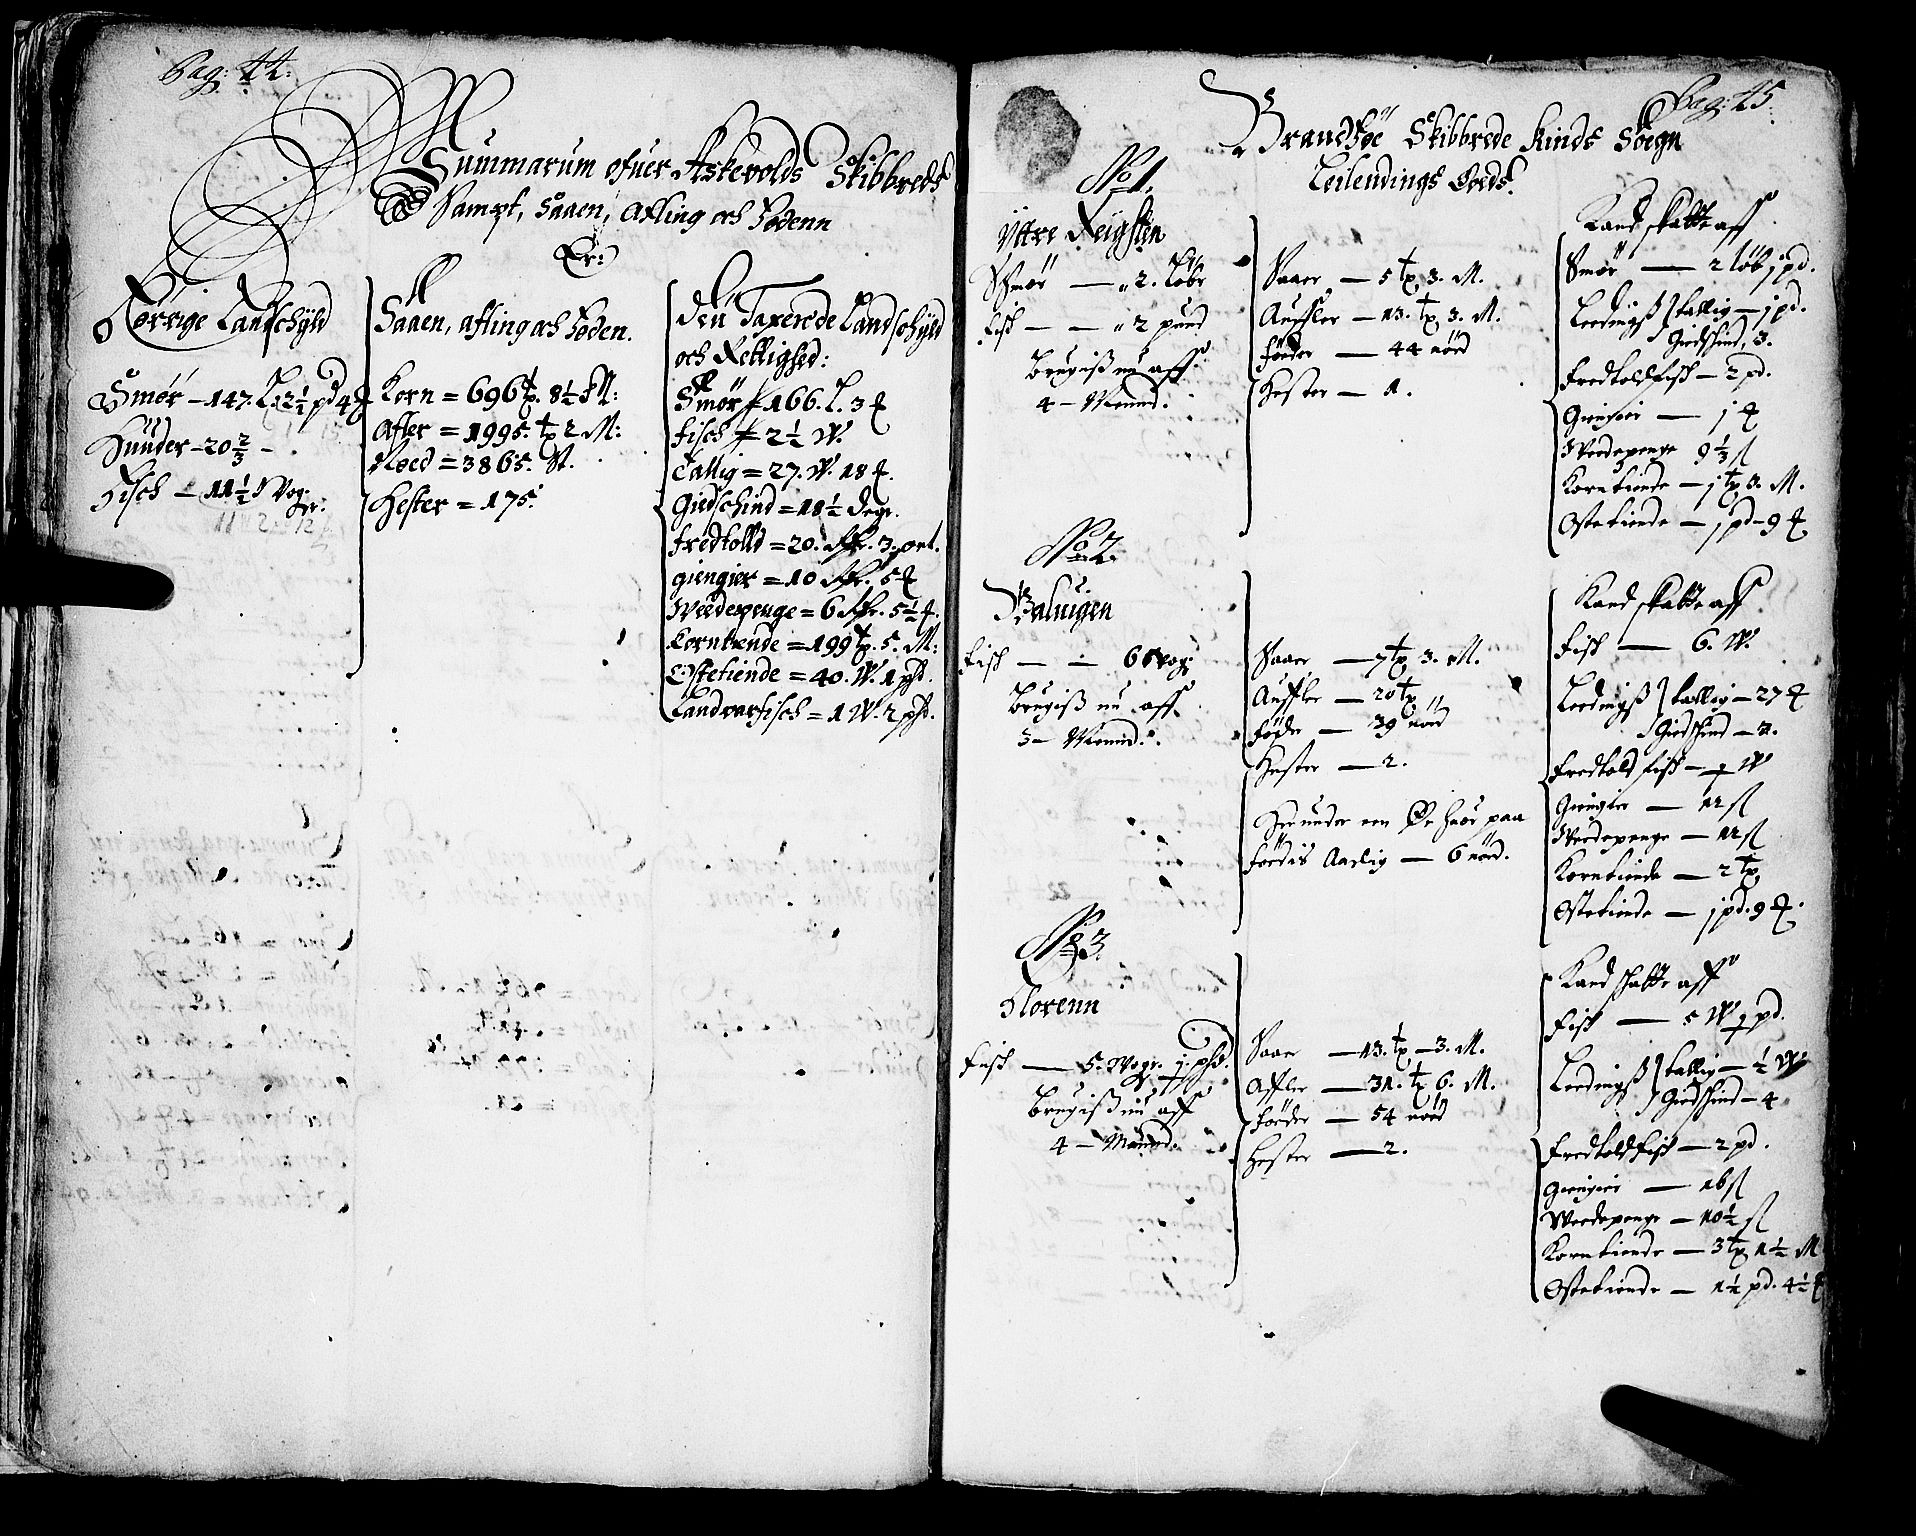 Pag: 44:
Summarum ofuer Askevolds Skibbreds
Sampt, Saaen, Afling och Födenn
Er:
Förrige Landschyld
Smör - 147. L. 2½ pd 4
Huuder - 20 2/3 -
Fisch - 11½ Vog:
Saaen, afling och Föden.
Korn = 696 t. 8½ M:
Afler = 1995. t 2 M:
Noed = 3865. St.
Hester = 175.
Den Taxerede Landschyld
och Rettighed:
Smör = 166. L. 3
Fisch = 2½ W.
Tallig = 27. W. 18
Giedschind = 18½ degr.
Fredtolld = 20. Rdr. 3. ort.
giengier = 10 Rdr. 5
Weedepenge = 6 Rdr. 5½
Corntiende = 199 t. 5. M:
Ostetiende = 40. W. 1 phd.
Landvarfisch = 1 W. 2 phd.
Pag: 45.
Brandsöe Skibbrede Kinds Sogn
Leilendings Goeds.
No 1.
Yttre Reigsten
Schmör — 2. Löbe
Fisk — — 2 pund
Brugiss nu aff
4 - Mænd.
Saaer — 5 t 3. M.
Auffler — 13. t 3. M.
Föeder — 44 nöed
Hester — 1.
Kand skatte aff
Smör — 2 löb j pd.
Leedingss tallig — j pd.
Giedskind, 3.
Fredtold fisk — 2 pd.
Giengier — j
Weedepenge 9⅓ s
Korntiende — j t 3. M.
Ostetiende — j pd - 9
No 2.
Baluigen
Fisk — — 6 Wog:
Brugiss nu aff
3 - Mænd.
Saaer — 7 t 3. M.
Auffler — 20 t
Föde — 39 nöed
Hester — 2.
Herunder een Öe huor paa
Föedis Aarlig — 6 nöed.
Kand skatte aff
Fisk — 6. W.
Leedingss tallig — 27
Giedskind — 2.
Fredtold fisk — W
Giengier — 12 s
Weedepenge — 12 s
Korntiende — 2 t
Ostetiende — j pd. 9
No 3.
Florenn
Fisk — 5. Wogr. j. phd.
Brugiss nu aff
4 — Mænd.
Saaer — 13. t — 3. M.
Affler — 31. t 6. M.
Föeder — 54 nöed
Hester — 2.
Kand skatte aff
Fisk — 5 W j pd.
Leedingss tallig — ½ W
Giedskind — 4
Fredtold fisk — 2 pd.
Giengier — 16 s
Weedepenge — 10½ s
Korntiende — 3 t 1½ M
Ostetiende — 1½ pd. 4½